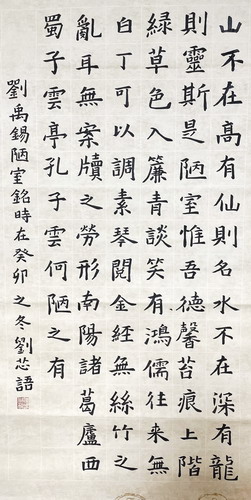 山不在高有仙則名水不在深有龍
則靈斯是陋室惟吾德馨苔痕上階
綠草色入簾青談笑有鴻儒往來無
白丁可以調素琴閱金經無絲竹之
亂耳無案牘之勞形南陽諸葛廬西
蜀子雲亭孔子雲何陋之有
劉禹錫陋室銘時在癸卯之冬劉芯語